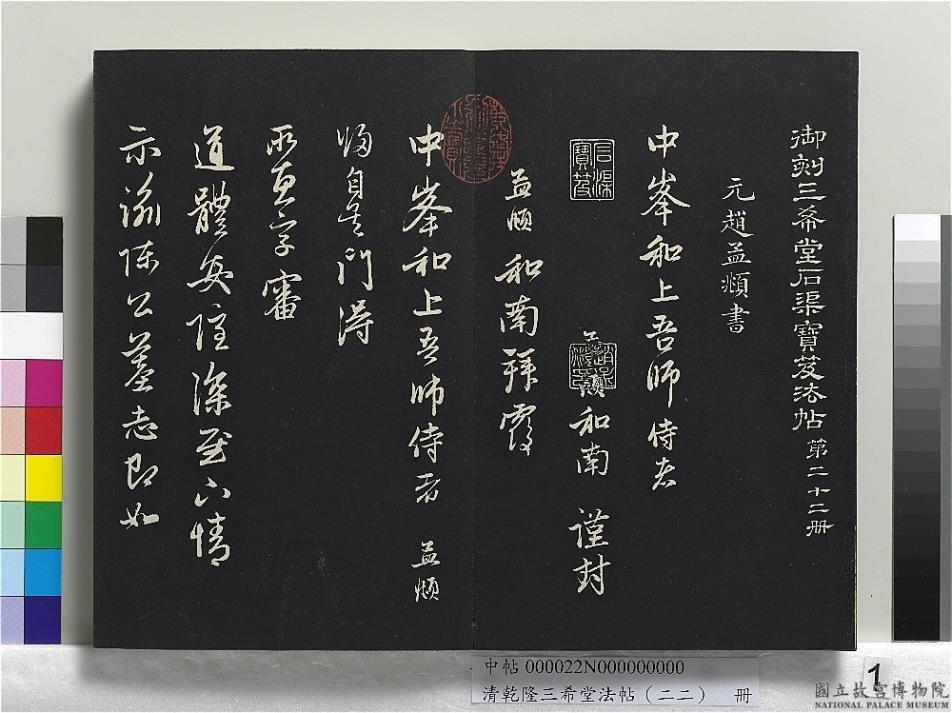 御刻三希堂石渠寶笈法帖 第二十二册
元趙孟頫書
中峯和上吾師侍者
孟頫和南 謹封
石渠寶笈
孟頫和南拜覆
中峯和上吾師侍者 孟頫
歸自吳門得
所惠字審
道體安隱深慰下情
示諭陳公墓志即如
中帖 000022N000000000
清乾隆三希堂法帖（二二） 册
1
國立故宮博物院
NATIONAL PALACE MUSEUM